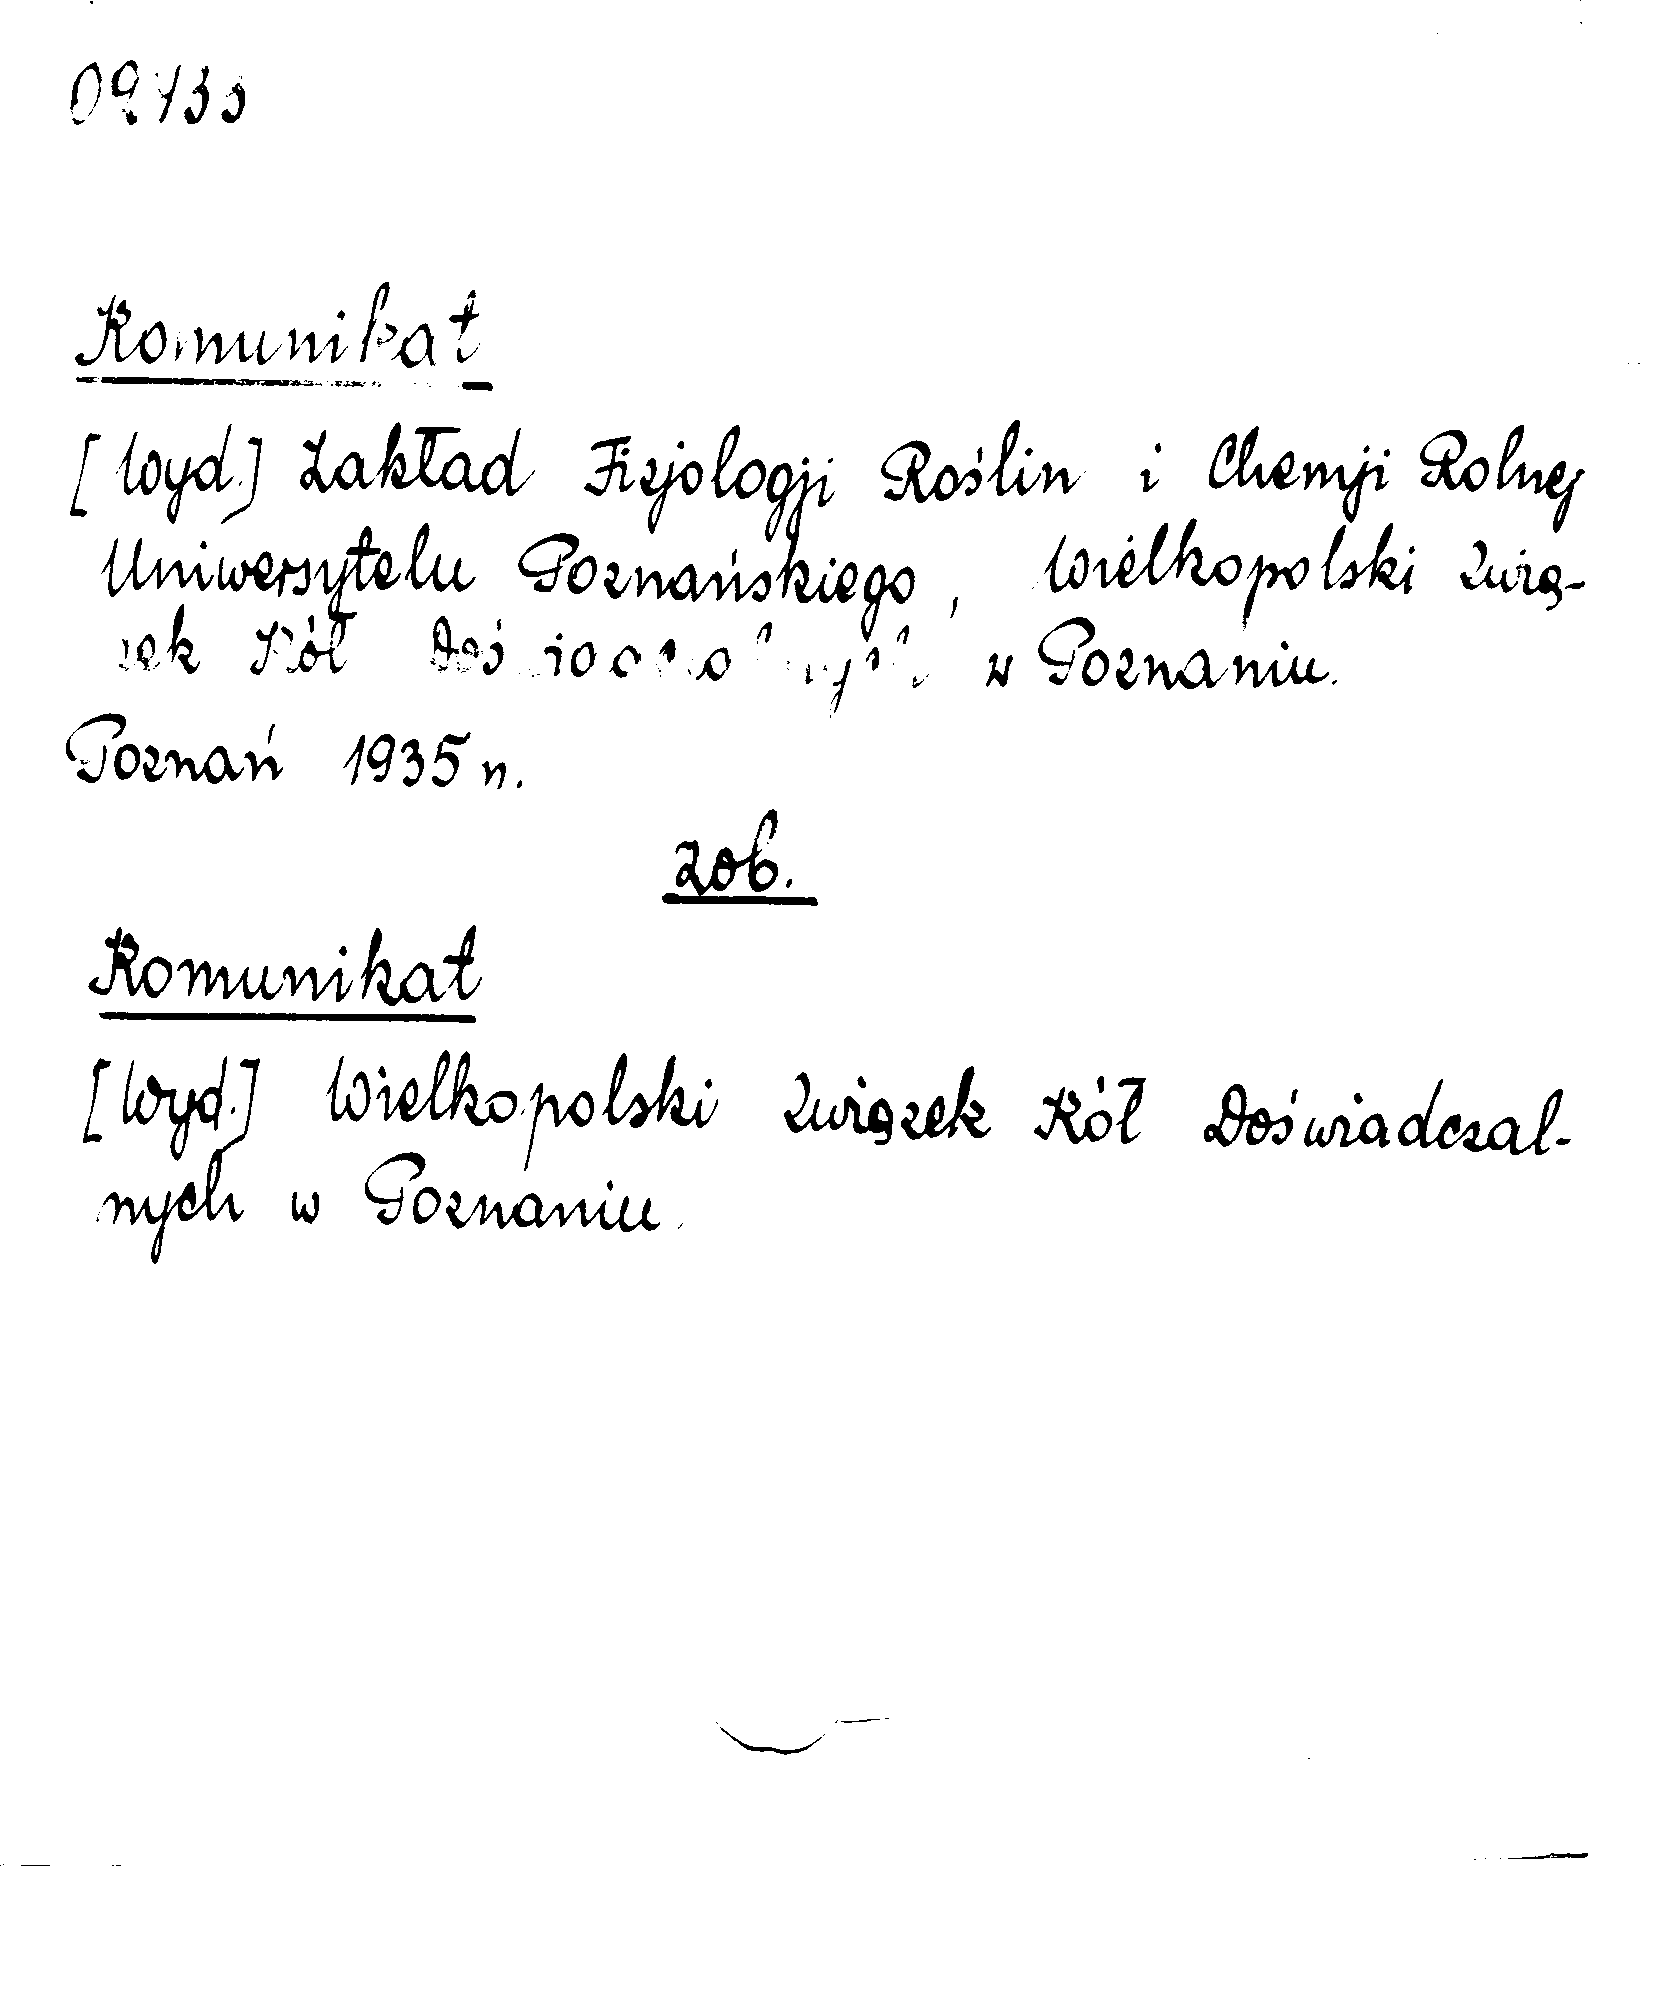 Komunikat
[Wyd.] Zakład Fizjologji Roślin i Chemji Rolnej
Uniwersytetu Poznańskiego, Wielkopolski Zwią-
zek Kół w Poznaniu.
Poznań 1935 r.
zob.
Komunikat
[Wyd.] Wielkopolski Związek Kół Doświadczal-
nych w Poznaniu.